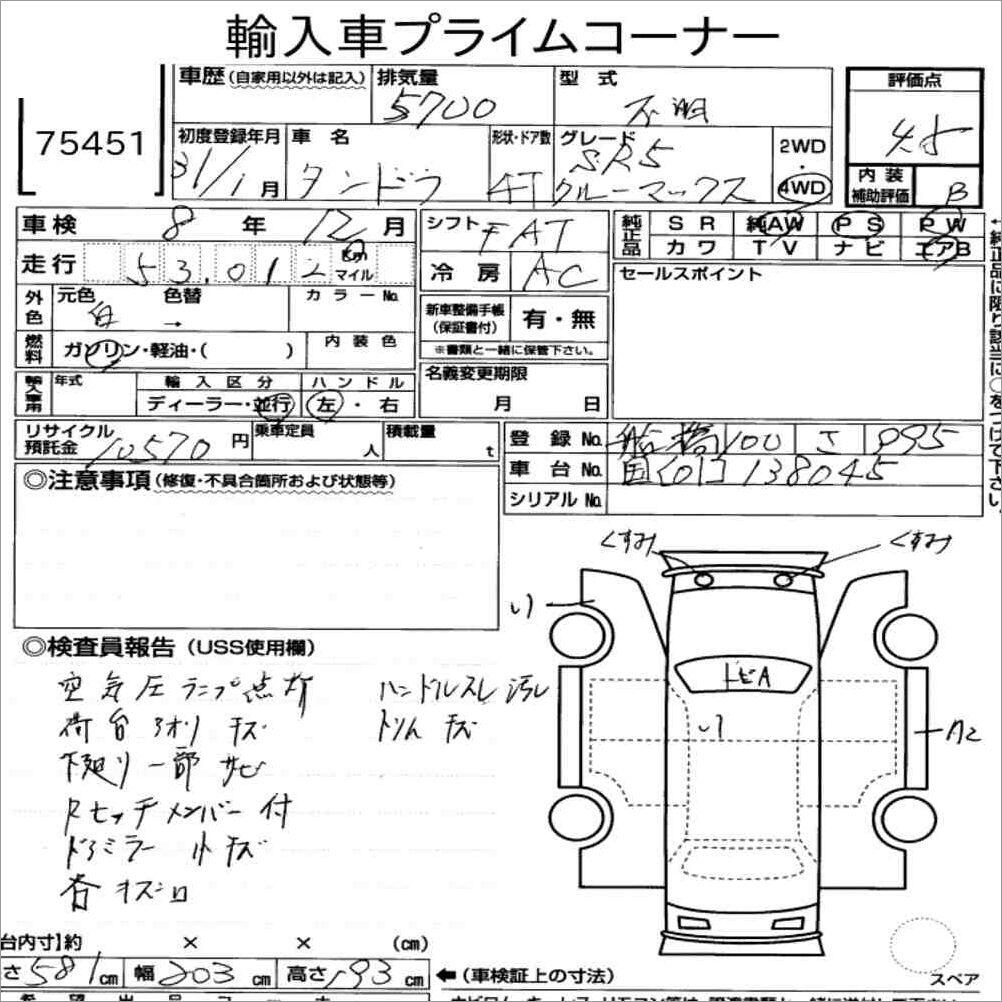 輸入車プライムコーナー
75451
車歴(自家用以外は記入) 排気量 5700 型式 不明 評価点 4.5
初度登録年月 31/1月 車名 タンドラ 形状・ドア数 4T グレード SR5 クルーマックス 2WD・4WD
内装補助評価 B
車検 8年 12月 シフト FAT 純正品 SR 純AW PS PW
カワ TV ナビ エアB
走行 53,012 Km マイル 冷房 AC セールスポイント
外色 元色 白 色替 → カラーNo.
新車整備手帳(保証書付) 有・無
※書類と一緒に保管下さい。
燃料 ガソリン・軽油・( ) 内装色
輸入車用 年式 輸入区分 ディーラー・並行 ハンドル 左・右
名義変更期限 月 日
リサイクル預託金 10570円 乗車定員 人 積載量 t
登録No. 船橋 100 さ 995
車台No. 国[01]138045
シリアルNo.
◎注意事項(修復・不具合箇所および状態等)
くすみ くすみ
◎検査員報告(USS使用欄)
空気圧ランプ点灯 ハンドルスレ汚レ
荷台アオリキズ トリムキズ
下廻り一部サビ
Rヒッチメンバー付
ドアミラー小キズ
トビA
A2
台内寸】約 × × (cm)
さ581cm 幅203cm 高さ193cm
←(車検証上の寸法)
スペア